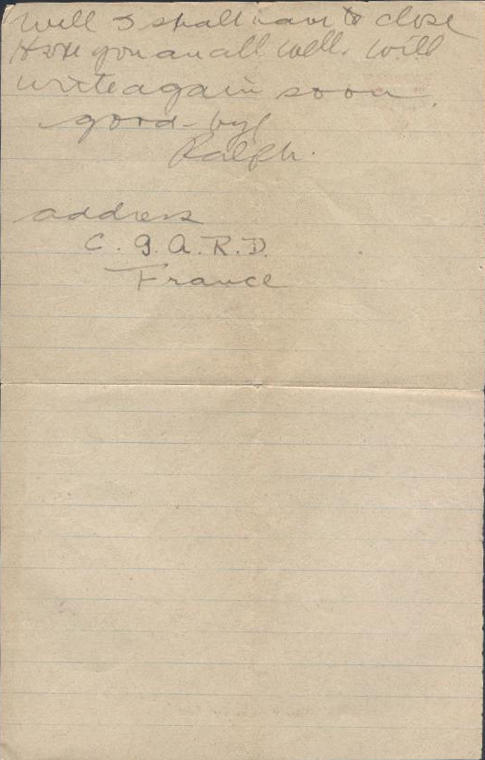 Well I shall have to close
Hope you are all well. Will
write again soon.
good-by
Ralph.
address
C. G. A. R. D.
France